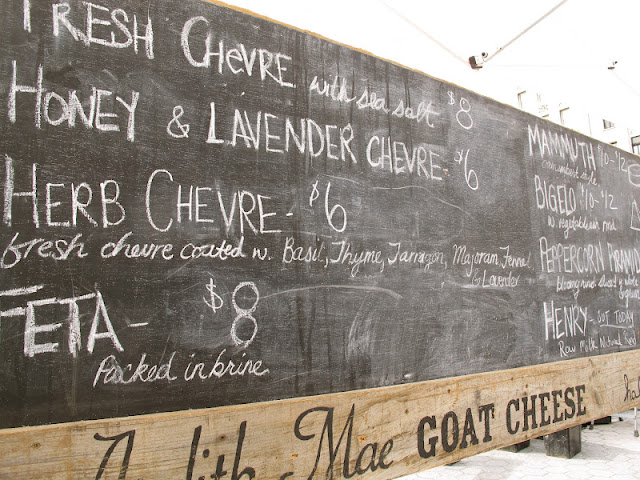 FRESH CHEVRE with sea salt $8
HONEY & LAVENDER CHEVRE - $6
HERB CHEVRE - $6
fresh chevre coated w. Basil, Thyme, Tarragon, Majoram, Fennel
& Lavender
FETA - $8
Packed in brine
MAMMUTH $10-$12
BIGELO $10-$12
w. vegetable ash rind
PEPPERCORN PYRAMID
HENRY - OUT TODAY
Raw Milk Natural Rind
Judith Mae GOAT CHEESE